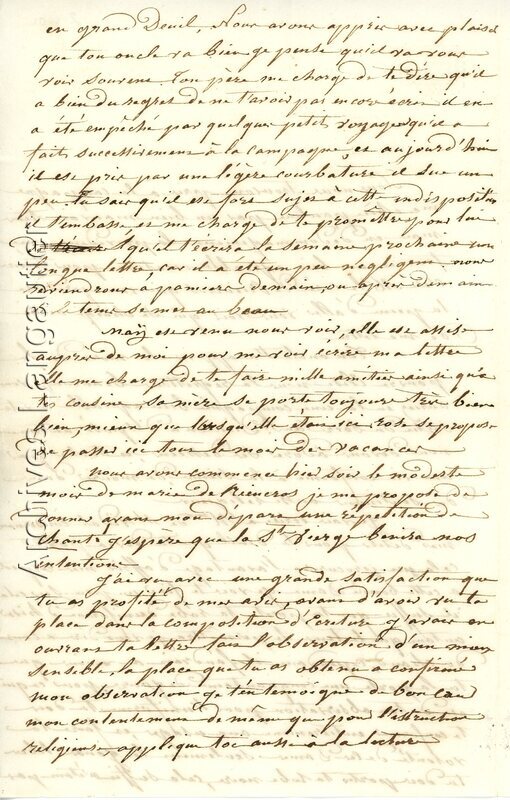 en grand Deuil, Nous avons appris avec plaisir
que ton oncle va bien je pense qu'il va vous
voir souvent. Ton père me charge de te dire qu'il
a bien du regret de ne t'avoir pas encore écrit il en
a été empêché par quelques petits voyages qu'il a
fait successivement à la campagne, et aujourd'hui
il est pris par une légère courbature il sue un
peu. Tu sais qu'il est fort sujet à cette indisposition
il t'embrasse et me charge de te promettre pour lui
qu'il t'écrira la semaine prochaine une
longue lettre, car il a été un peu negligent. nous
reviendrons à pamiers demain, ou après demain
le tems se met au beau
est venu nous voir, elle est assise
auprès de moi pour me voir écrire ma lettre
elle me charge de te faire mille amitiés ainsi qu'à
tes cousins, sa mère se porte toujours très bien
bien, mieux que lorsqu'elle était ici, rose se propose
de passer ici tout le mois de vacances
nous avons commencé hier soir le modeste
mois de marie de Rieucros je me propose de
donner avant mon départ une répétition de
chants j'espère que la Ste Vierge bénira nos
intentions
J'ai vu avec une grande satisfaction que
tu as profité de mes avis, avant d'avoir vu ta
place dans la composition d'Ecriture j'avais en
ouvrant ta lettre fait l'observation d'un mieux
sensible, la place que tu as obtenu a confirmé
mon observation je t'en témoigne de bon cœur
mon contentement de même que pour l'istruction
religieuse, applique toi aussi à la lecture
Archives Langautier